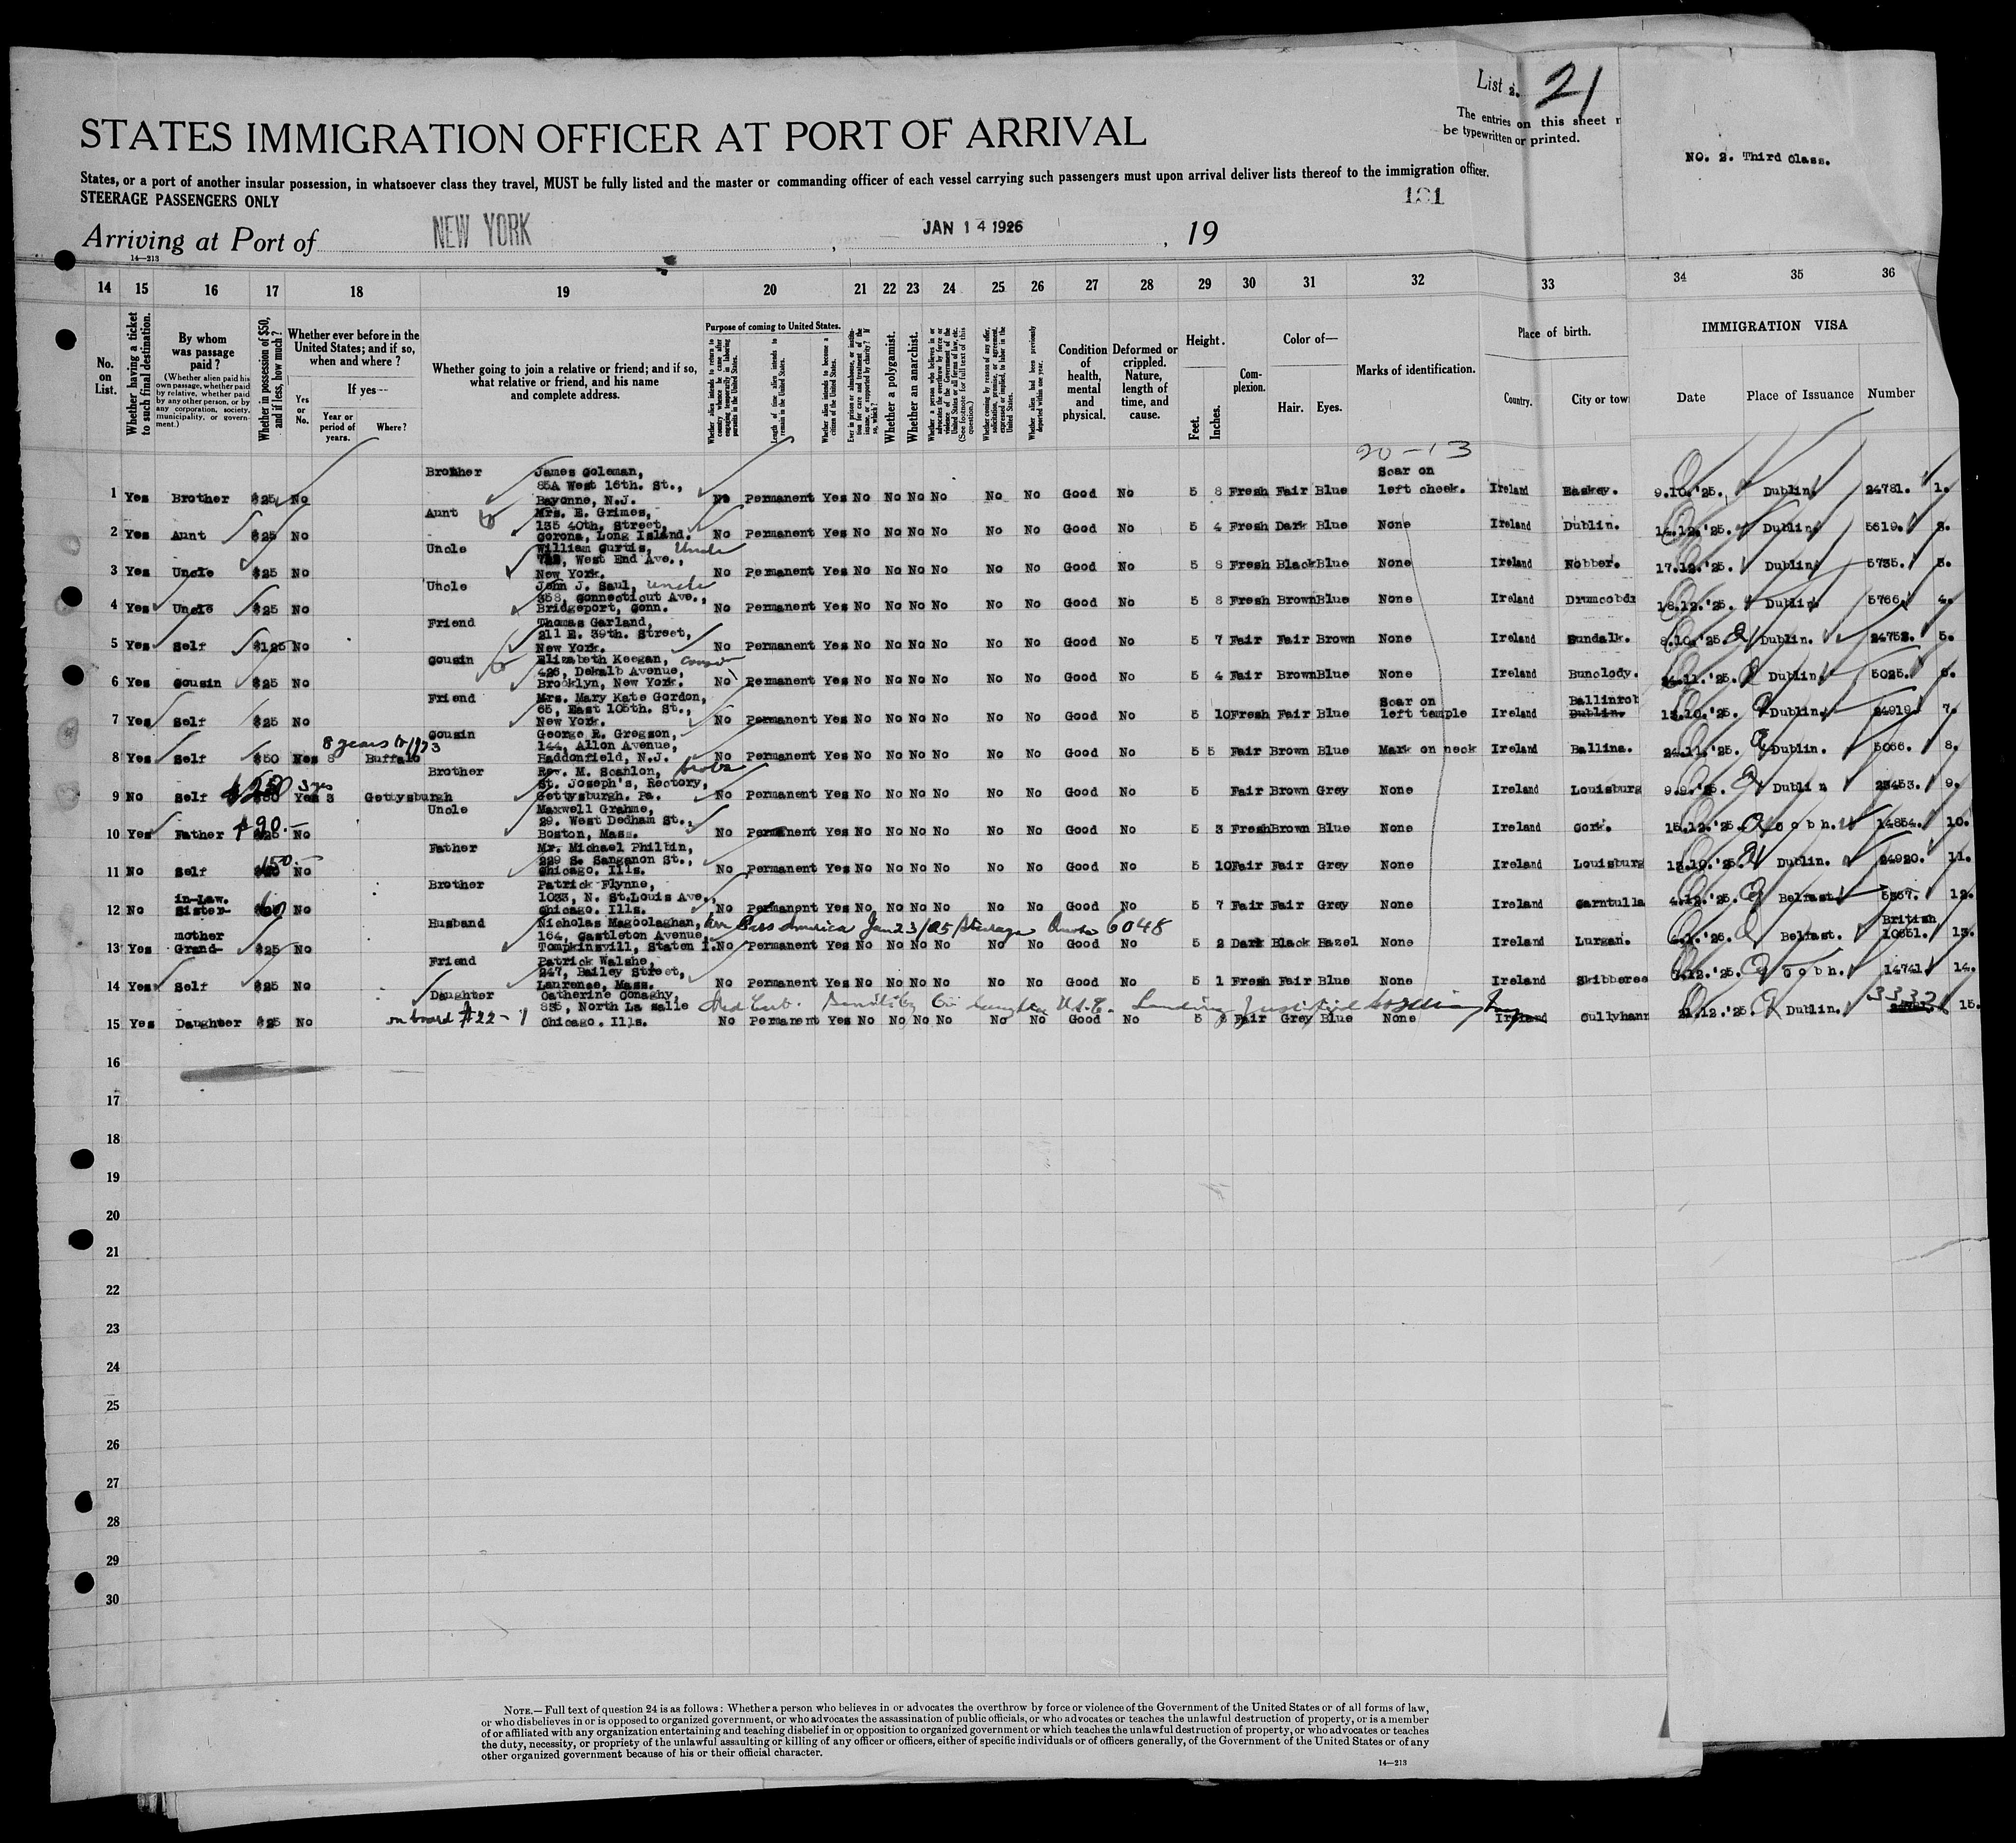 List 2. 21
The entries on this sheet
be typewritten or printed.
NO. 2. Third Class.
STATES IMMIGRATION OFFICER AT PORT OF ARRIVAL
States, or a port of another insular possession, in whatsoever class they travel, MUST be fully listed and the master or commanding officer of each vessel carrying such passengers must upon arrival deliver lists thereof to the immigration officer.
STEERAGE PASSENGERS ONLY
181
Arriving at Port of NEW YORK, JAN 14 1926, 19
14—213
14 15 16 17 18 19 20 21 22 23 24 25 26 27 28 29 30 31 32 33 34 35 36
No. on List.
Whether having a ticket to such final destination.
By whom was passage paid?
(Whether alien paid his own passage, whether paid by relative, whether paid by any other person, or by any corporation, society, municipality, or government.)
Whether in possession of $50, and if less, how much?
Whether ever before in the United States; and if so, when and where?
Yes or No.
If yes—
Year or period of years.
Where?
Whether going to join a relative or friend; and if so, what relative or friend, and his name and complete address.
Purpose of coming to United States.
Whether alien intends to return to country whence he came after engaging temporarily in laboring pursuits in the United States.
Length of time alien intends to remain in the United States.
Whether alien intends to become a citizen of the United States.
Ever in prison or almshouse, or institution for care and treatment of the insane, or supported by charity? If so, which?
Whether a polygamist.
Whether an anarchist.
Whether a person who believes in or advocates the overthrow by force or violence of the Government of the United States or all forms of law, etc. (See footnote for full text of this question.)
Whether coming by reason of any offer, solicitation, promise, or agreement, expressed or implied, to labor in the United States.
Whether alien had been previously deported within one year.
Condition of health, mental and physical.
Deformed or crippled. Nature, length of time, and cause.
Height.
Feet. Inches.
Complexion.
Color of—
Hair. Eyes.
Marks of identification.
Place of birth.
Country. City or tow
IMMIGRATION VISA
Date Place of Issuance Number
20-13
Brother James Coleman, Scar on
85A West 16th. St.,
1 Yes Brother $25 No Bayonne, N.J. No Permanent Yes No No No No No No Good No 5 8 Fresh Fair Blue left cheek. Ireland Easkey. 9.10.'25. Dublin. 24781. 1.
Aunt Mrs. E. Grimes,
135 40th. Street,
2 Yes Aunt $25 No Corona, Long Island. No Permanent Yes No No No No No No Good No 5 4 Fresh Dark Blue None Ireland Dublin. 14.12.'25. Dublin 5619. 2.
Uncle William Curtis, Uncle
West End Ave.,
3 Yes Uncle $25 No New York. No Permanent Yes No No No No No No Good No 5 8 Fresh Black Blue None Ireland Nobber. 17.12.'25. Dublin 5735. 3.
Uncle John J. Saul, uncle
358, Connecticut Ave.,
4 Yes Uncle $25 No Bridgeport, Conn. No Permanent Yes No No No No No No Good No 5 8 Fresh Brown Blue None Ireland Drumcondr 18.12.'25. Dublin 5766. 4.
Friend Thomas Garland,
211 E. 39th. Street,
5 Yes Self $125 No New York. No Permanent Yes No No No No No No Good No 5 7 Fair Fair Brown None Ireland Dundalk. 8.10.'25. Dublin. 24752. 5.
Cousin Elizabeth Keegan, Cousin
426, Dekalb Avenue,
6 Yes Cousin $25 No Brooklyn, New York. No Permanent Yes No No No No No No Good No 5 4 Fair Brown Blue None Ireland Bunclody. 24.11.'25. Dublin. 5025. 6.
Friend Mrs. Mary Kate Gordon, Scar on Ballinrob
65, East 105th. St.,
7 Yes Self $25 No New York. No Permanent Yes No No No No No No Good No 5 10 Fresh Fair Blue left temple Ireland Dublin. 13.10.'25. Dublin. 24919. 7.
8 years to 1923
Cousin George R. Gregson,
144, Allon Avenue,
8 Yes Self $50 Yes 8 Buffalo Haddonfield, N.J. No Permanent Yes No No No No No No Good No 5 5 Fair Brown Blue Mark on neck Ireland Ballina. 24.11.'25. Dublin. 5066. 8.
Brother Rev. M. Scanlon,
St. Joseph's, Rectory,
$250 3 yrs
9 No Self $50 Yes 3 Gettysburgh Gettysburgh. Pa. No Permanent Yes No No No No No No Good No 5 Fair Brown Grey None Ireland Louisburg 9.9.'25. Dublin 23453. 9.
Uncle Maxwell Grahme,
29. West Dedham St.,
$90.—
10 Yes Father $25 No Boston, Mass. No Permanent Yes No No No No No No Good No 5 3 Fresh Brown Blue None Ireland Cork. 15.12.'25. Cobh. 14854. 10.
Father Mr. Michael Philbin,
229 S. Sanganon St.,
150.—
11 No Self No Chicago. Ills. No Permanent Yes No No No No No No Good No 5 10 Fair Fair Grey None Ireland Louisburg 13.10.'25. Dublin. 24920. 11.
Brother Patrick Flynne,
in-Law. 1033, N. St.Louis Ave.,
12 No Sister- No Chicago. Ills. No Permanent Yes No No No No No No Good No 5 7 Fair Fair Grey None Ireland Carntulla 4.12.'25. Belfast. 5367. 12.
Husband Nicholas Magoolaghan, Arr Pass America Jan 23/25 Steerage Quota 6048 British
mother 164, Castleton Avenue,
13 Yes Grand- $25 No Tompkinsvill, Staten I. No Permanent Yes No No No No No No Good No 5 2 Dark Black Hazel None Ireland Lurgan. Belfast. 10651. 13.
Friend Patrick Walshe,
247, Bailey Street,
14 Yes Self $25 No Laurense, Mass. No Permanent Yes No No No No No No Good No 5 1 Fresh Fair Blue None Ireland Skibberee Cobh. 14741. 14.
Daughter Catherine Conaghy, 3332
North La Salle
on board #22-1
15 Yes Daughter $25 No Chicago. Ills. No Permanent Yes No No No No No No Good No 5 Fair Grey Blue None Ireland Cullyhann 21.12.'25. Dublin. 15.
16
17
18
19
20
21
22
23
24
25
26
27
28
29
30
NOTE.—Full text of question 24 is as follows: Whether a person who believes in or advocates the overthrow by force or violence of the Government of the United States or of all forms of law,
or who disbelieves in or is opposed to organized government, or who advocates the assassination of public officials, or who advocates or teaches the unlawful destruction of property, or is a member
of or affiliated with any organization entertaining and teaching disbelief in or opposition to organized government or which teaches the unlawful destruction of property, or who advocates or teaches
the duty, necessity, or propriety of the unlawful assaulting or killing of any officer or officers, either of specific individuals or of officers generally, of the Government of the United States or of any
other organized government because of his or their official character.
14—213